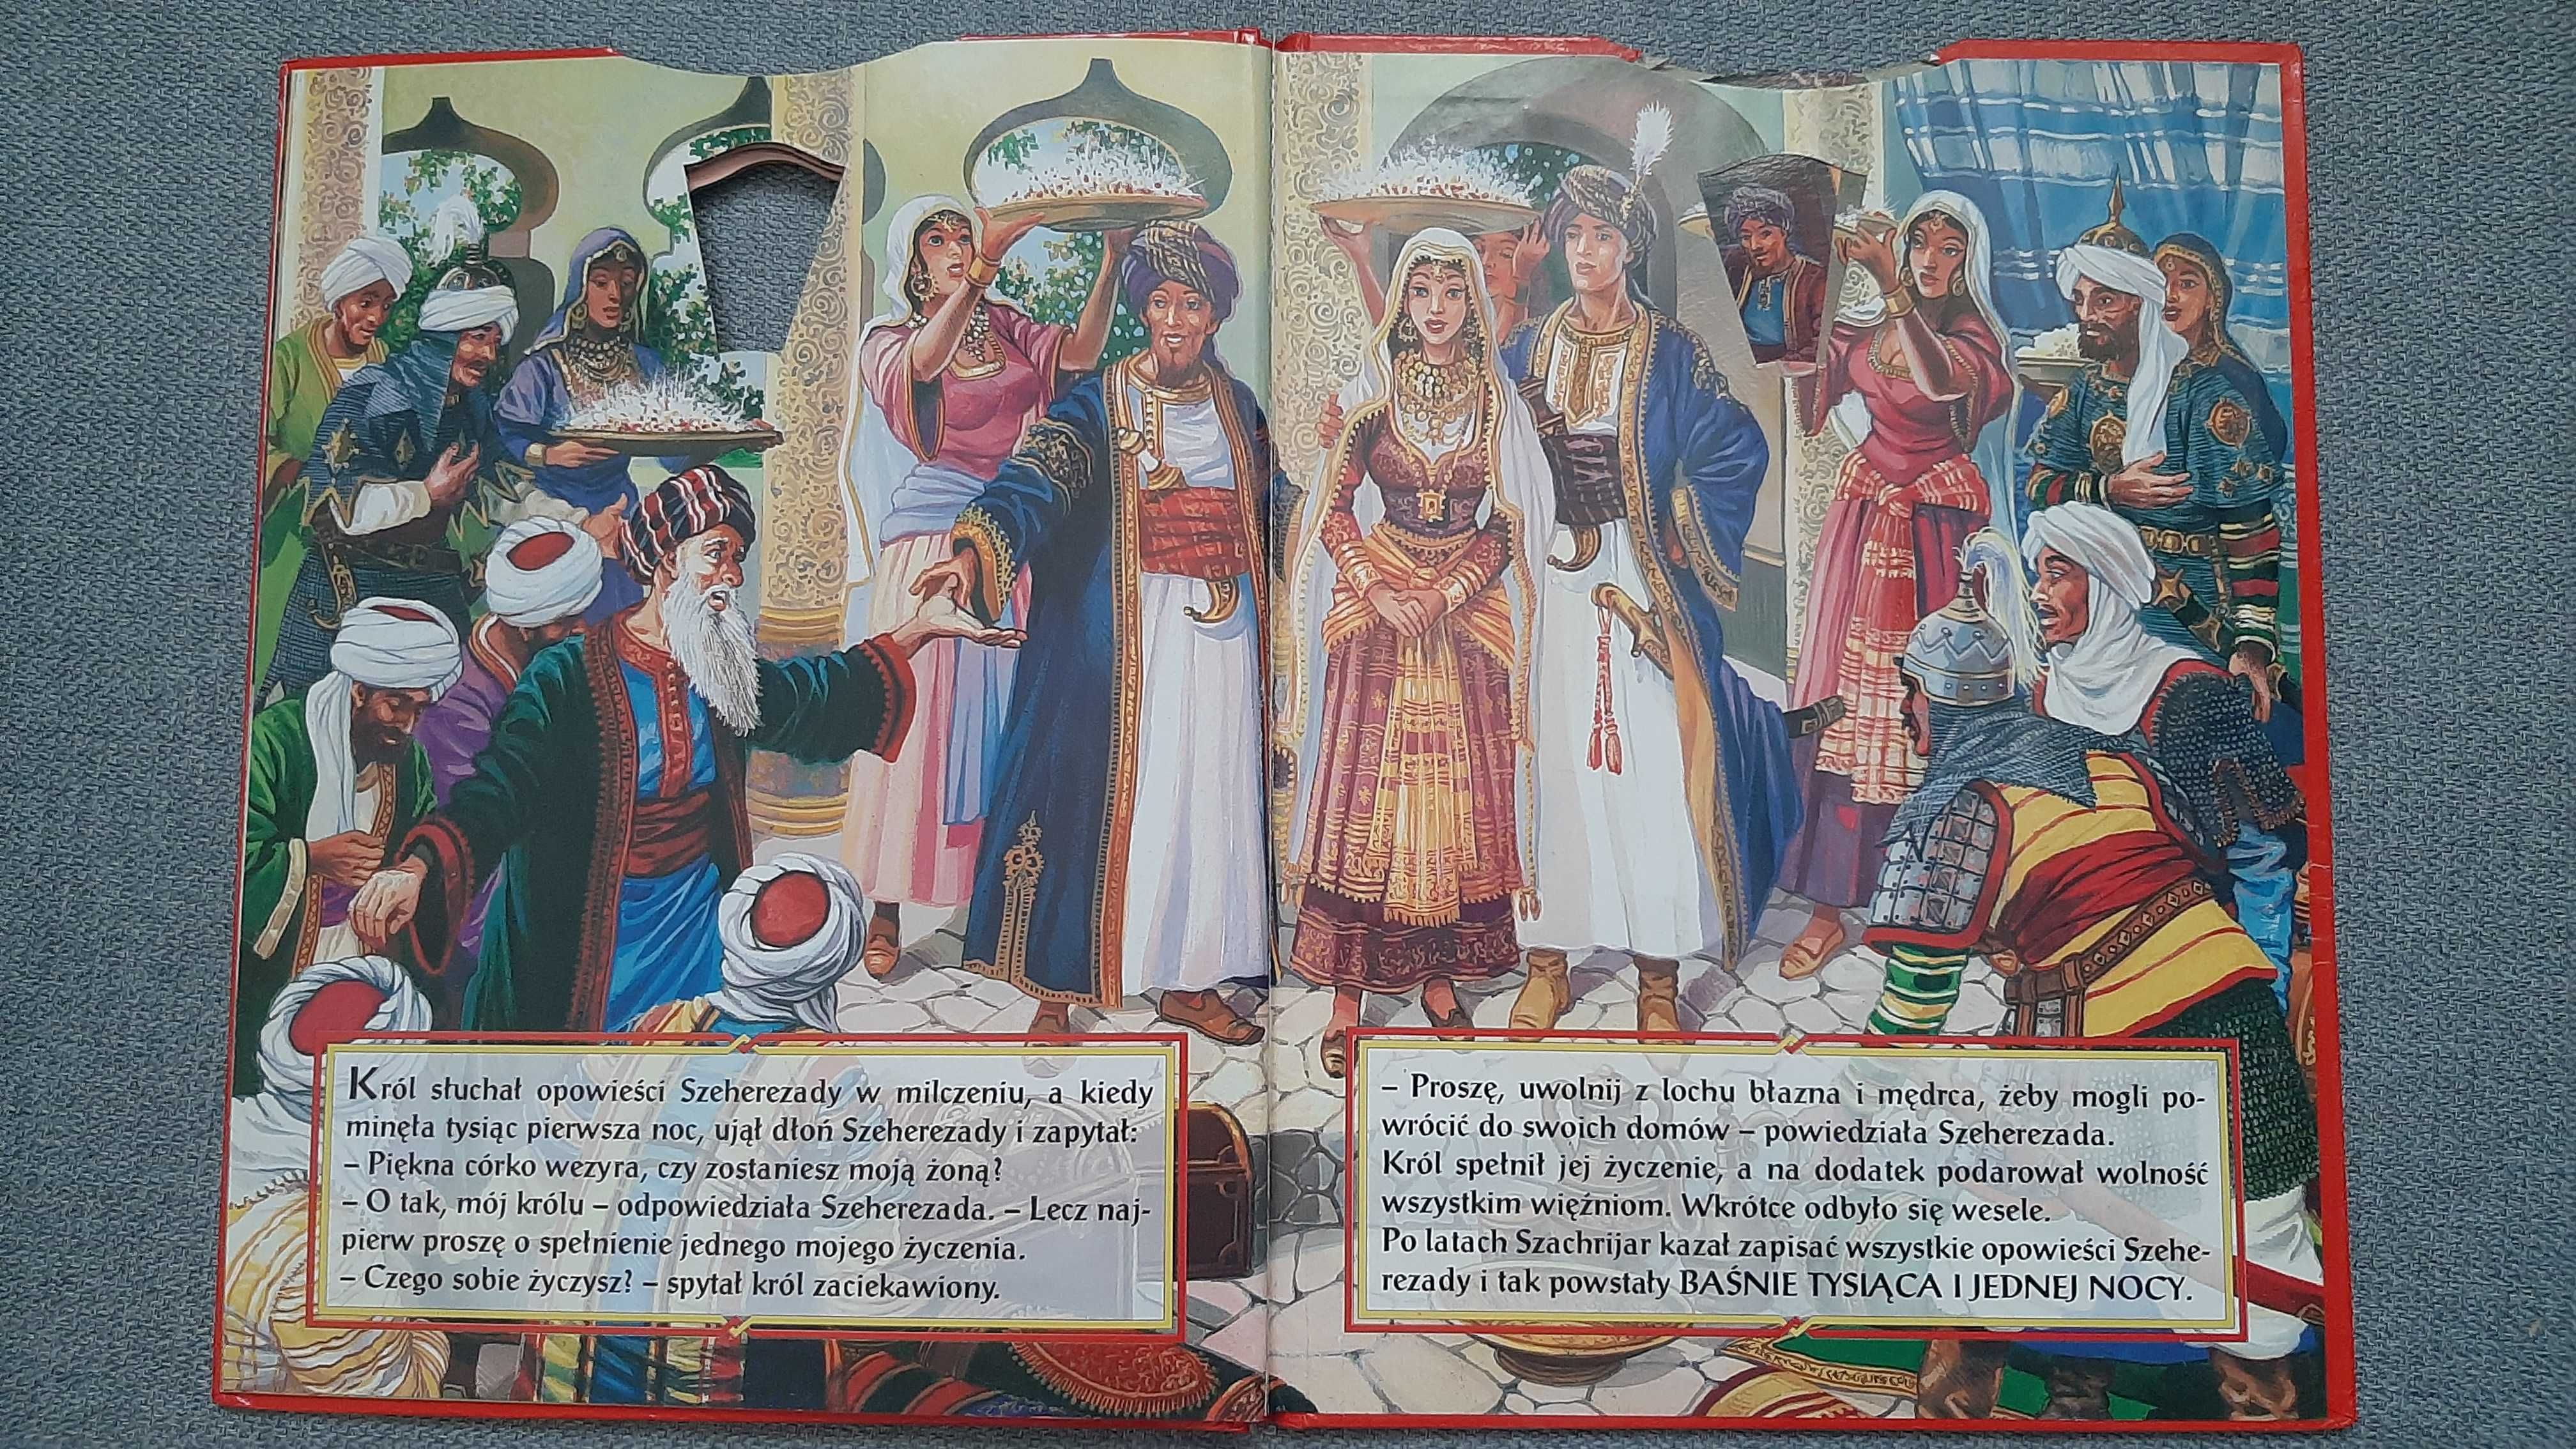 Król słuchał opowieści Szeherezady w milczeniu, a kiedy
minęła tysiąc pierwsza noc, ujął dłoń Szeherezady i zapytał:
– Piękna córko wezyra, czy zostaniesz moją żoną?
– O tak, mój królu – odpowiedziała Szeherezada. – Lecz naj-
pierw proszę o spełnienie jednego mojego życzenia.
– Czego sobie życzysz? – spytał król zaciekawiony.
– Proszę, uwolnij z lochu błazna i mędrca, żeby mogli po-
wrócić do swoich domów – powiedziała Szeherezada.
Król spełnił jej życzenie, a na dodatek podarował wolność
wszystkim więźniom. Wkrótce odbyło się wesele.
Po latach Szachrijar kazał zapisać wszystkie opowieści Szehe-
rezady i tak powstały BAŚNIE TYSIĄCA I JEDNEJ NOCY.